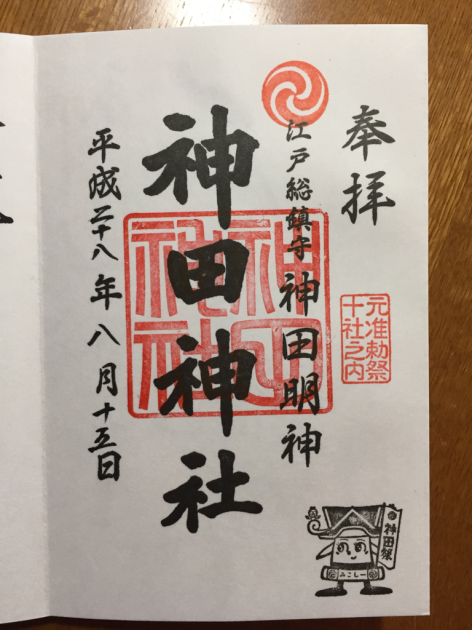 奉拝
元准勅祭
十社之内
江戸総鎮守神田明神
神田神社
平成二十八年八月十五日
神田祭
みこしー